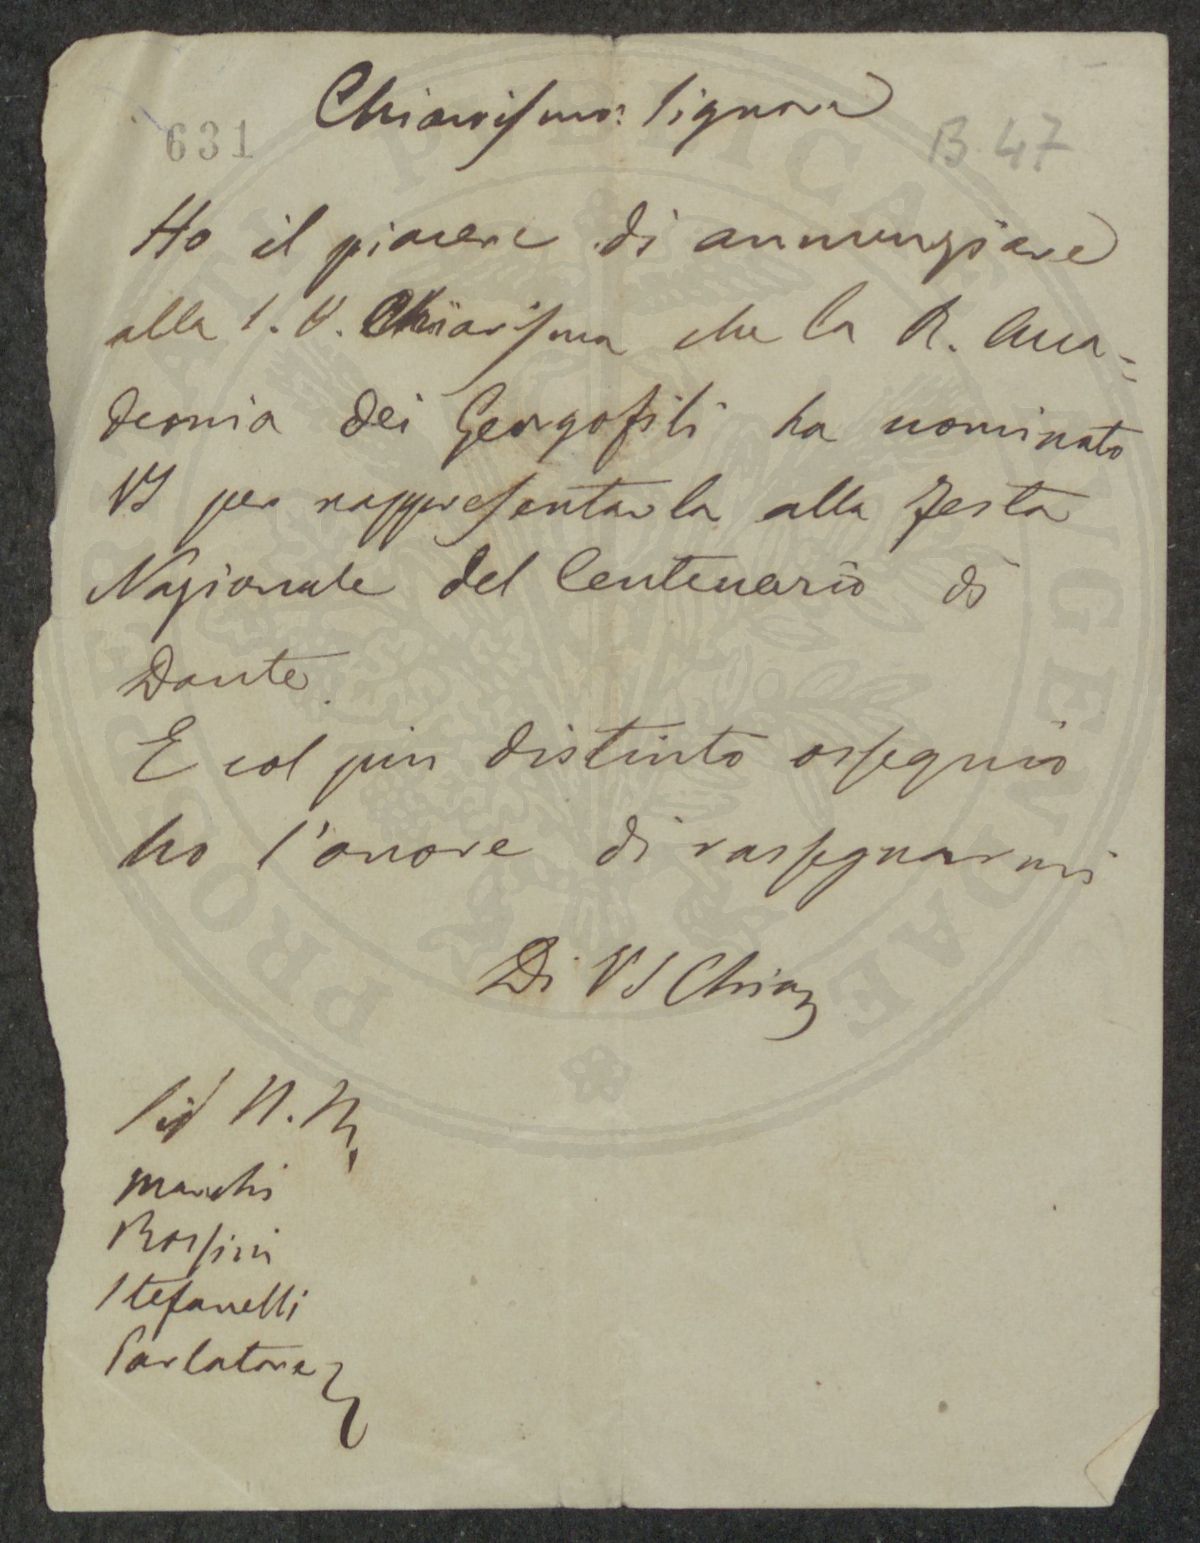 Chiarissimo: Signore
631
B. 47
Ho il piacere di annunziare
alla S. V. Chiarissima che la R. Acca=
demia dei Georgofili ha nominato
VS per rappresentarla alla Festa
Nazionale del Centenario di
Dante.
E col piu distinto ossequio
ho l'onore di rassegnarmi
Di VS Chiar
Sig N. N.
Marchi
Rossini
Stefanelli
Parlatore
PROSPERITATI PUBLICAE AUGENDAE